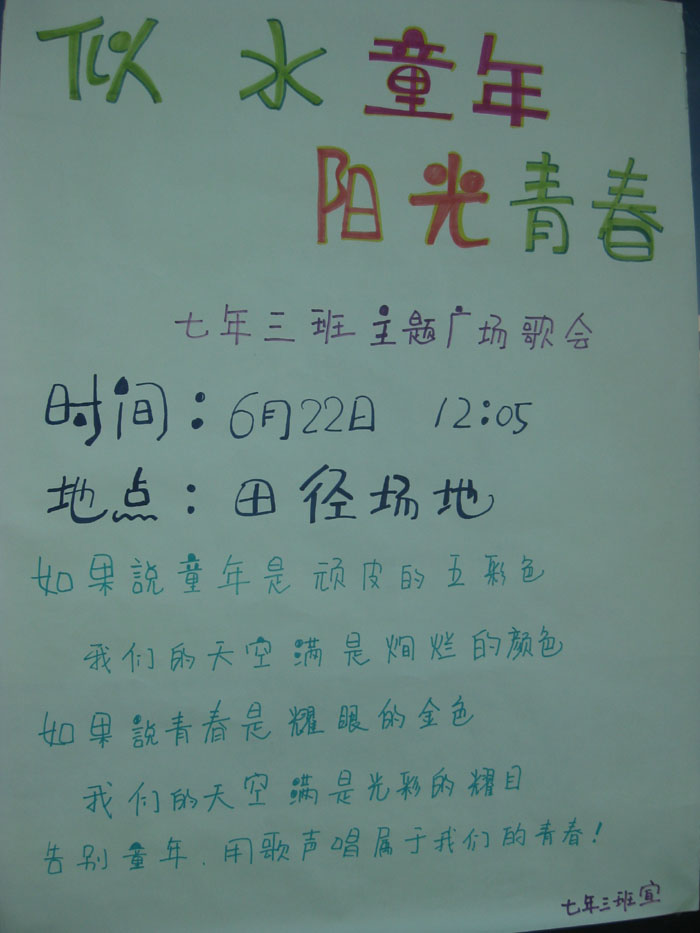 似水童年
阳光青春
七年三班主题广场歌会
时间：6月22日 12:05
地点：田径场地
如果說童年是顽皮的五彩色
我们的天空满是炯烂的颜色
如果說青春是耀眼的金色
我们的天空满是光彩的耀目
告别童年、用歌声唱属于我们的青春！
七年三班宣